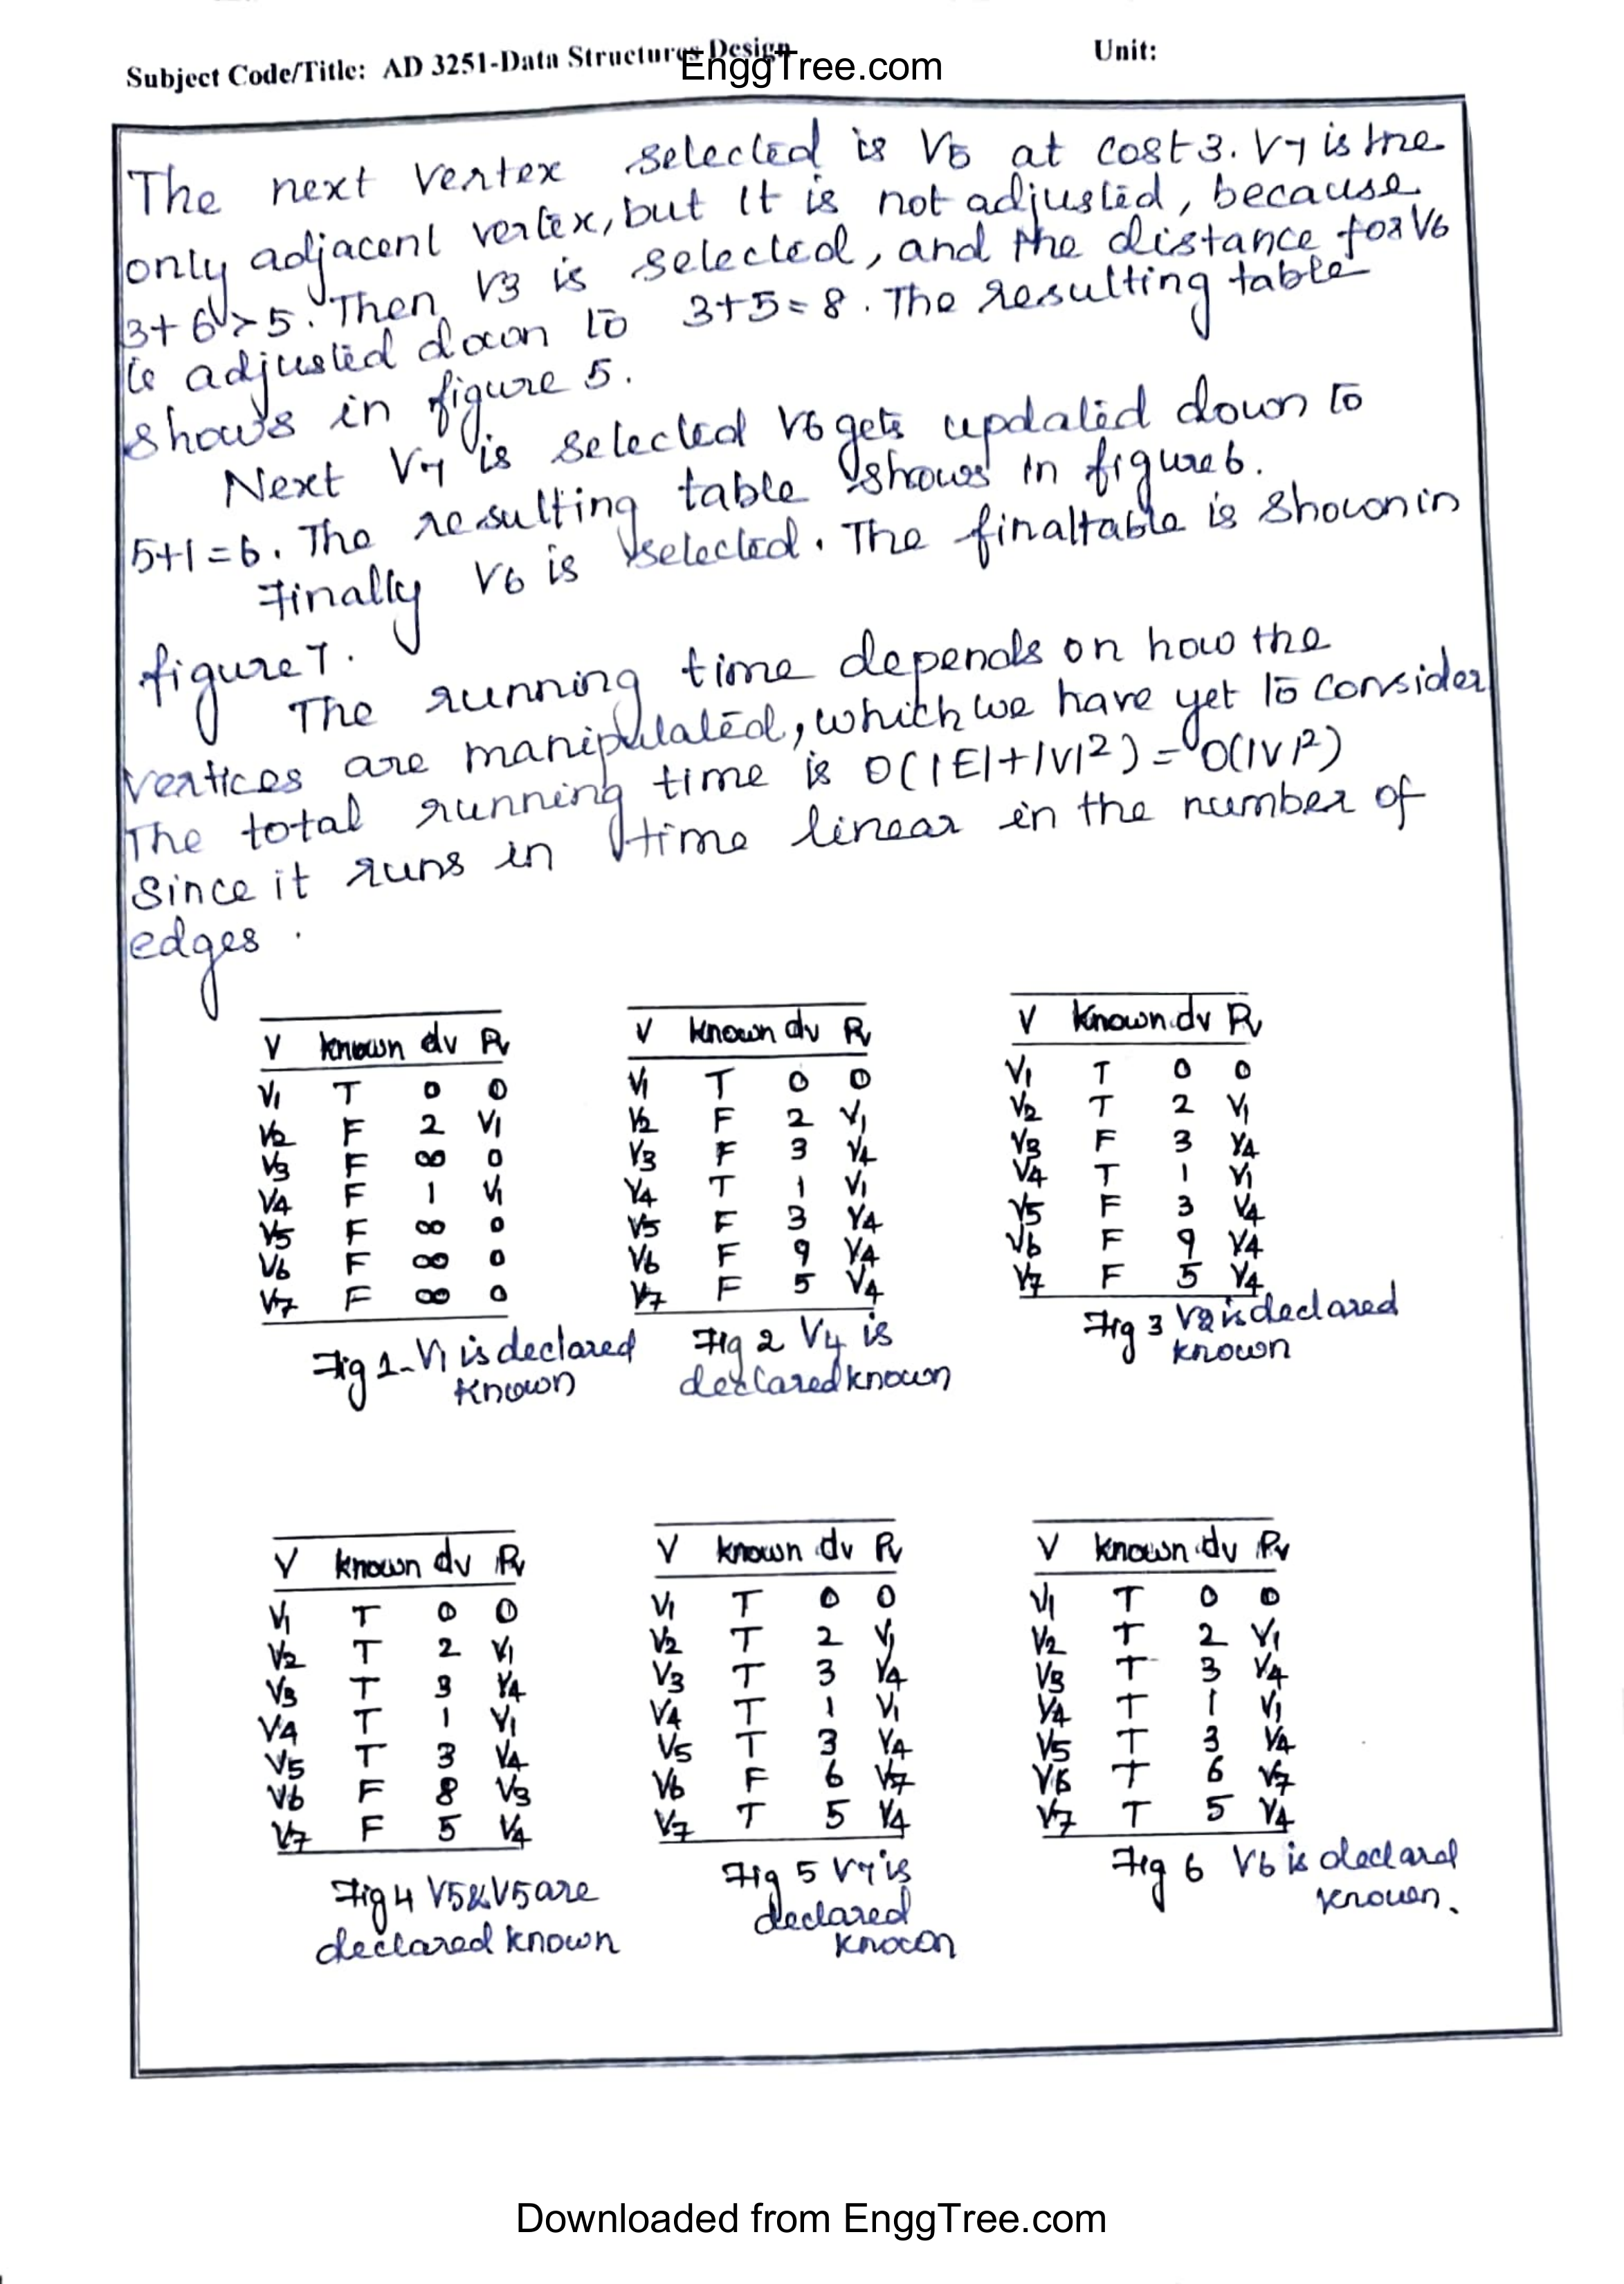 Subject Code/Title: AD 3251-Data Structures Design
EnggTree.com
Unit:
The next vertex selected is V5 at cost 3. V7 is the
only adjacent vertex, but it is not adjusted, because
3+6>5. Then V3 is selected, and the distance for V6
is adjusted down to 3+5=8. The resulting table
shows in figure 5.
Next V7 is selected V6 gets updated down to
5+1=6. The resulting table shows in figure 6.
Finally V6 is selected. The final table is shown in
figure 7.
The running time depends on how the
vertices are manipulated, which we have yet to consider
The total running time is O(|E|+|V|²) = O(|V|²)
Since it runs in time linear in the number of
edges.
V known dv Pv
V1 T 0 0
V2 F 2 V1
V3 F ∞ 0
V4 F 1 V1
V5 F ∞ 0
V6 F ∞ 0
V7 F ∞ 0
Fig 1- V1 is declared
known
V known dv Pv
V1 T 0 0
V2 F 2 V1
V3 F 3 V4
V4 T 1 V1
V5 F 3 V4
V6 F 9 V4
V7 F 5 V4
Fig 2 V4 is
declared known
V known dv Pv
V1 T 0 0
V2 T 2 V1
V3 F 3 V4
V4 T 1 V1
V5 F 3 V4
V6 F 9 V4
V7 F 5 V4
Fig 3 V2 is declared
known
V known dv Pv
V1 T 0 0
V2 T 2 V1
V3 T 3 V4
V4 T 1 V1
V5 T 3 V4
V6 F 8 V3
V7 F 5 V4
Fig 4 V5 & V5 are
declared known
V known dv Pv
V1 T 0 0
V2 T 2 V1
V3 T 3 V4
V4 T 1 V1
V5 T 3 V4
V6 F 6 V7
V7 T 5 V4
Fig 5 V7 is
declared
known
V known dv Pv
V1 T 0 0
V2 T 2 V1
V3 T 3 V4
V4 T 1 V1
V5 T 3 V4
V6 T 6 V7
V7 T 5 V4
Fig 6 V6 is declared
known.
Downloaded from EnggTree.com